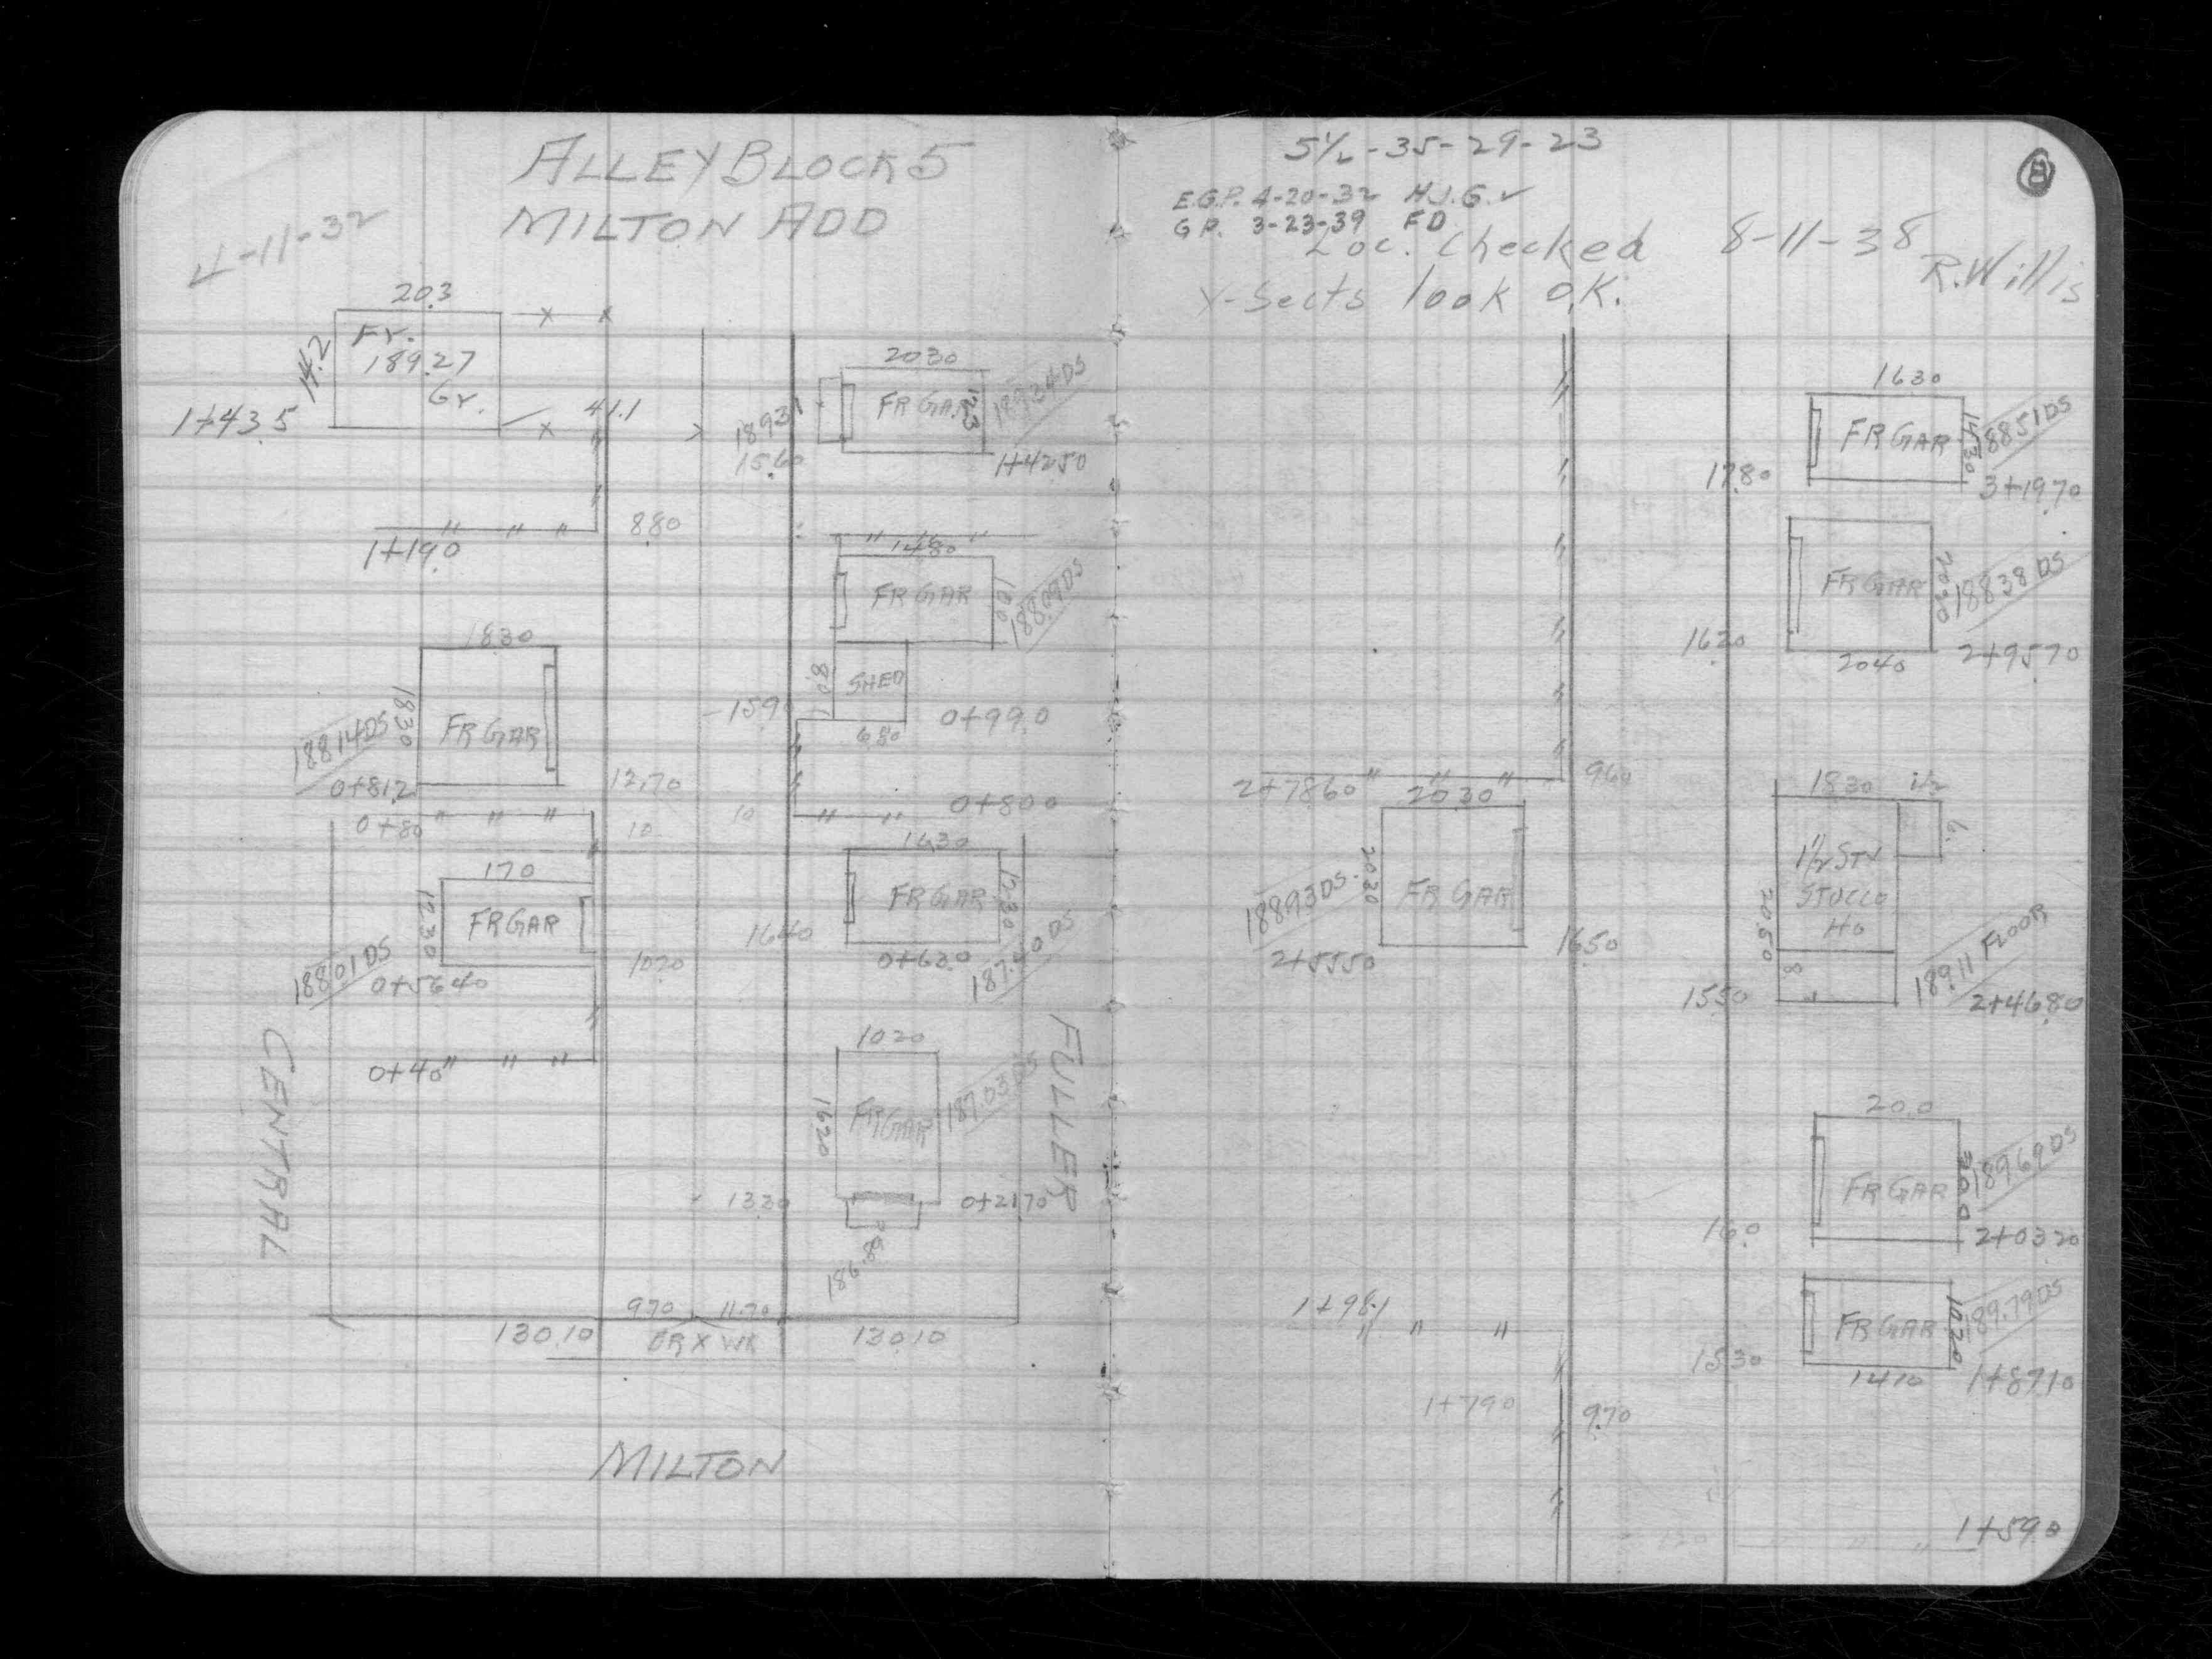 ALLEY BLOCK 5
MILTON ADD
4-11-32
20.3
14.2
Fr.
189.27
Gr.
1+43.5
41.1
1+19.0
8.80
18.30
18.30
FR GAR
188.14 DS
0+81.2
12.70
0+80
10
10
17.0
FR GAR
188.01 DS
0+56.40
10.20
0+40
CENTRAL
20.30
FR GAR
12.3
189.31
15.60
1+42.50
14.80
FR GAR
188.09 DS
SHED
8.0
6.80
15.9
0+99.0
0+80.0
16.30
FR GAR
16.40
0+63.0
187.40 DS
10.20
16.20
FR GAR
187.03 DS
13.30
0+21.70
186.89
FULLER
9.70 11.70
130.10 BR X WK 130.10
MILTON
5½-35-29-23
8
E.G.P. 4-20-32 H.J.G. ✓
G.P. 3-23-39 FD
Loc. Checked 8-11-38
R. Willis
X-Sects look O.K.
16.30
FR GAR
14.30
188.51 DS
17.80
3+19.70
FR GAR
20.40
188.38 DS
16.20
2+95.70
2+78.60
9.60
20.30
20.30
FR GAR
188.93 DS
2+55.50
16.50
18.30
6.
1½ STY
STUCCO
HO
20.50
8
189.11 FLOOR
15.50
2+46.80
20.0
FR GAR
20.0
189.69 DS
16.0
2+03.20
1+98.1
FR GAR
10.20
189.79 DS
15.30
14.10
1+87.10
1+79.0
9.70
1+59.0